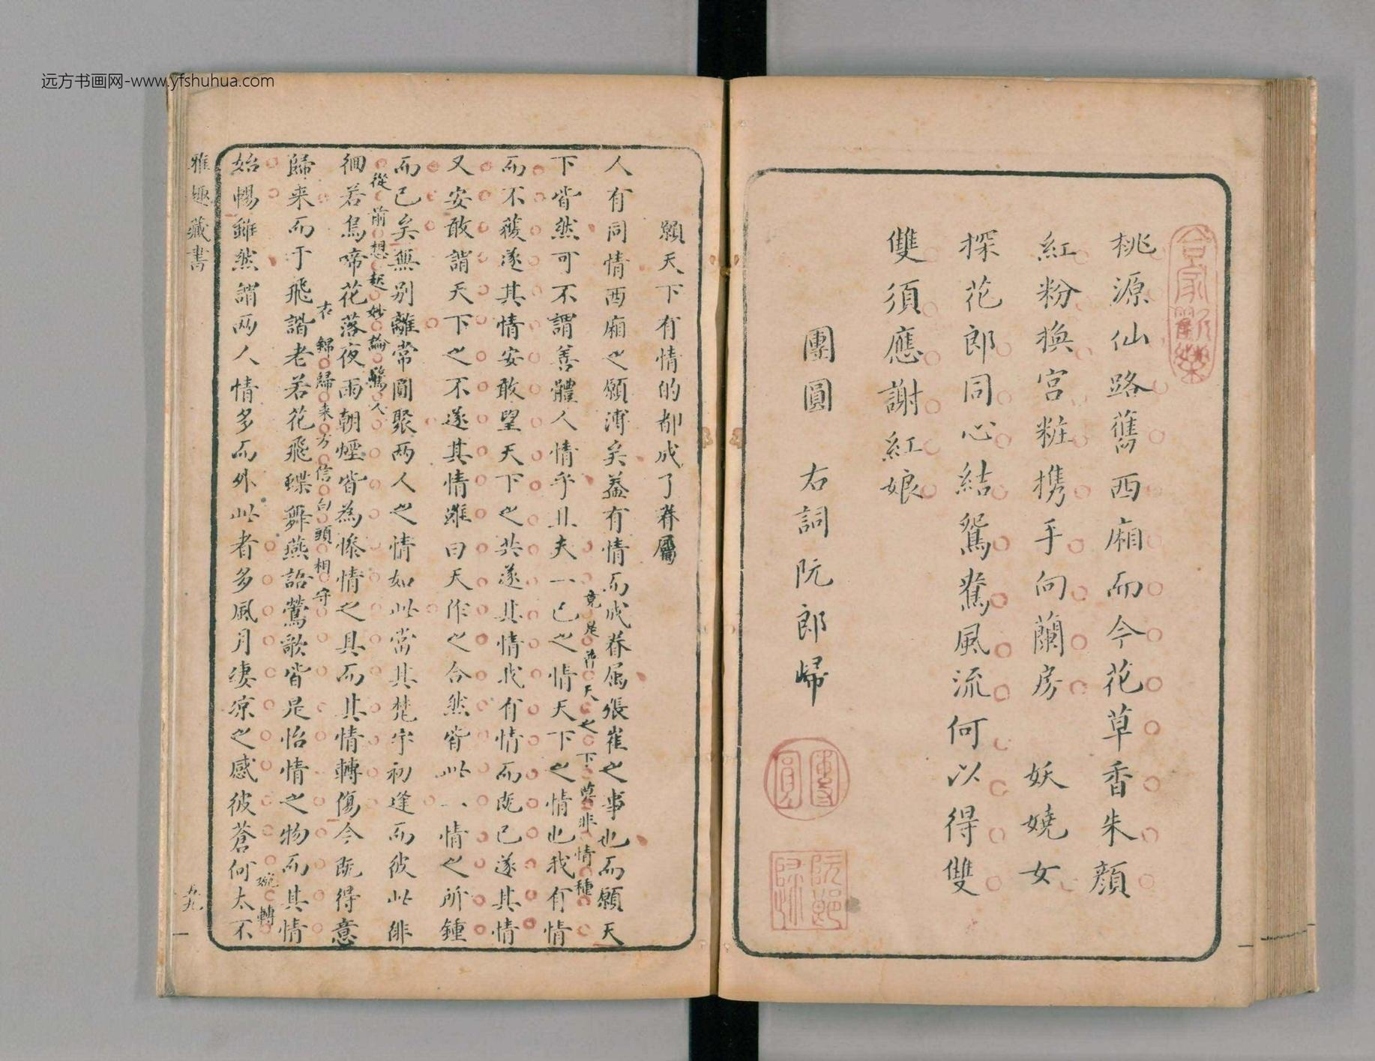 远方书画网-www.yfshuhua.com
合家歡樂
桃源仙路舊西廂而今花草香朱顏
紅粉換宮粧携手向蘭房 妖嬈女
探花郎同心結鴛鴦風流何以得雙
雙須應謝紅娘
團圓 右詞阮郎歸
團圓
阮郎歸
願天下有情的都成了眷屬
人有同情西廂之願溥矣蓋有情而成眷属張崔之事也而願天
竟是普天之下莫非情種
下皆然可不謂善體人情乎且夫一己之情天下之情也我有情
而不獲遂其情安敢望天下之共遂其情我有情而既已遂其情
又安敢謂天下之不遂其情雖曰天作之合然皆此一情之所鍾
而已矣無别離常團聚两人之情如此當其梵宇初逢而彼此徘
從前想起妙論驚人
徊若鳥啼花落夜雨朝煙皆為惨情之具而其情轉傷今既得意
衣錦歸来方信白頭相守
歸来而于飛諧老若花飛蝶舞燕語鶯歌皆是怡情之物而其情
婉轉
始暢雖然謂两人情多而外此者多風月凄凉之感彼蒼何太不
雅趣藏書